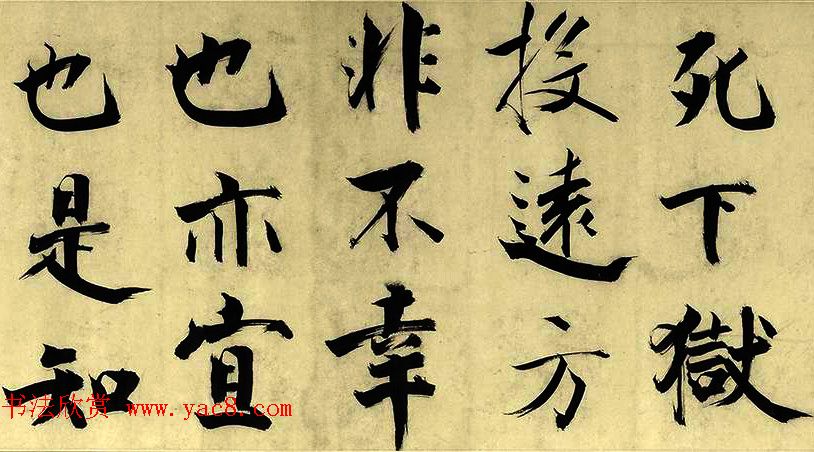 死下獄
投遠方
非不幸
也亦宜
也是知
书法欣赏 www.yac8.com